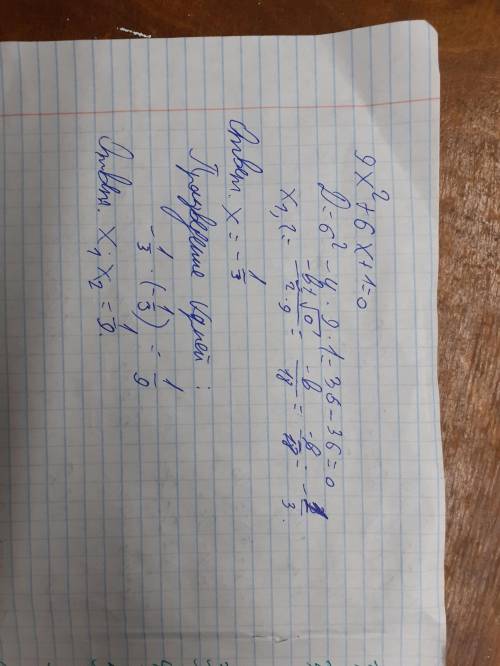 9x² + 6x + 1 = 0
D = 6² - 4 · 9 · 1 = 36 - 36 = 0
x₁,₂ = (-6 ± √0)/(2·9) = -6/18 = -6/18 = -1/3.
Ответ. x = -1/3
Произведение корней :
-1/3 · (-1/3) = 1/9
Ответ. x₁ · x₂ = 1/9.